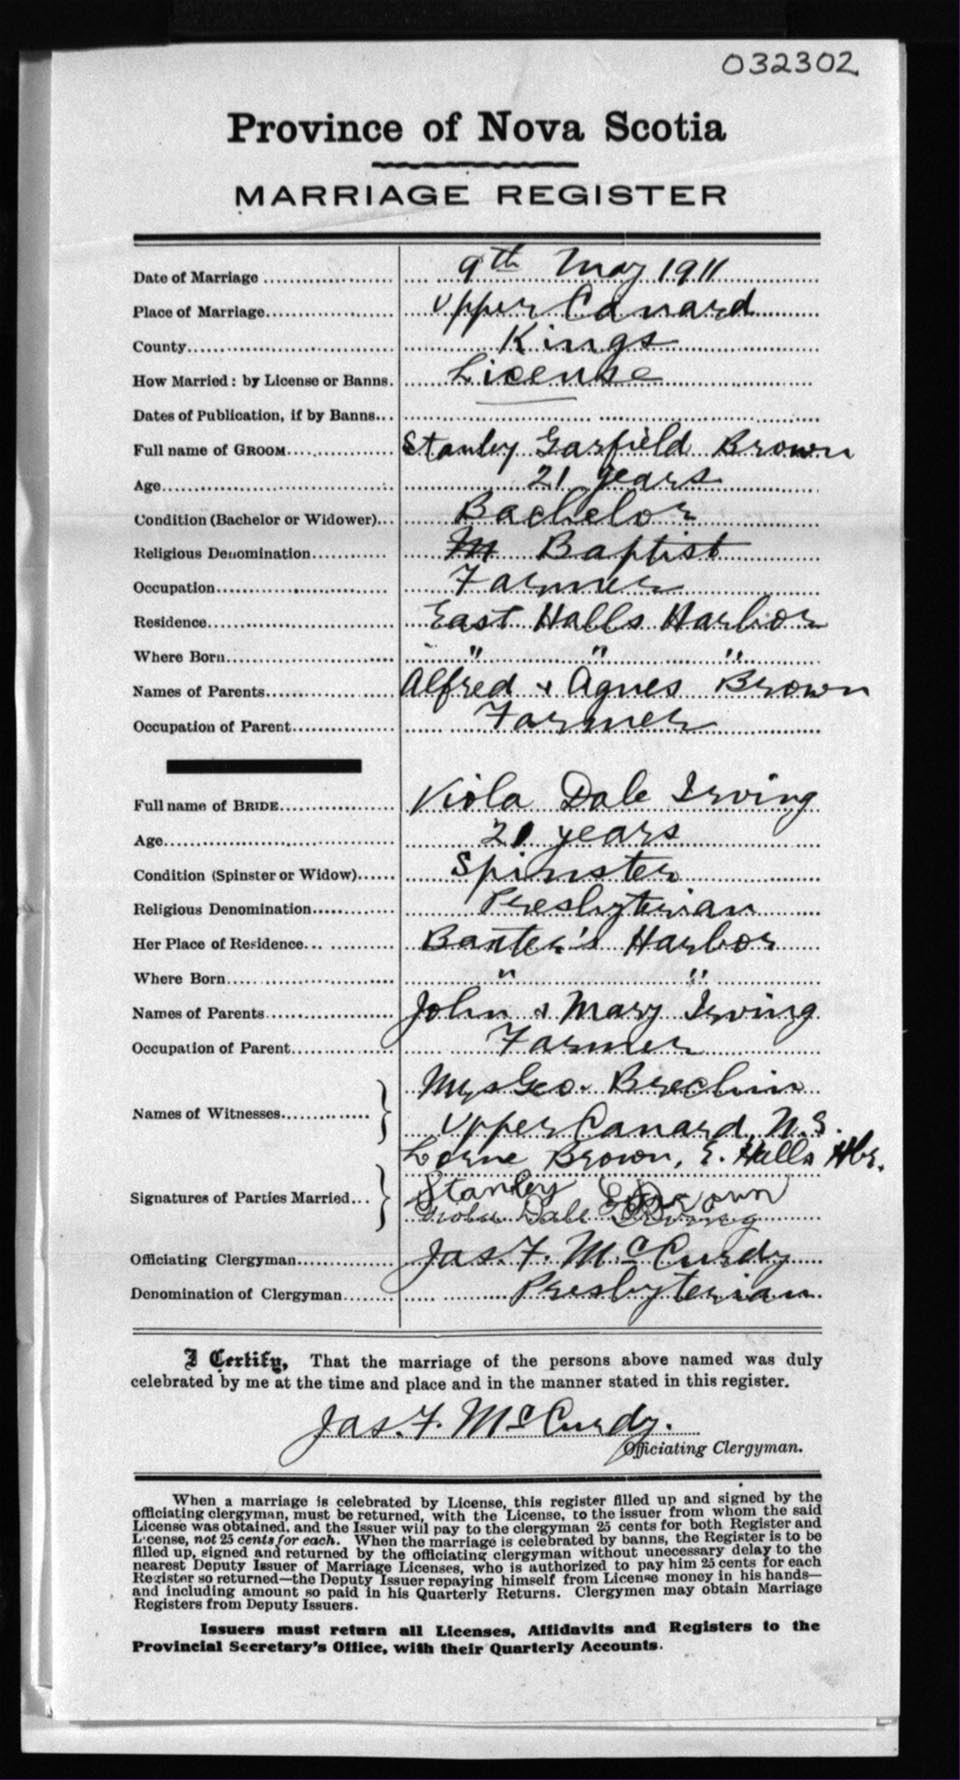 032302
Province of Nova Scotia
MARRIAGE REGISTER
Date of Marriage 9th May 1911
Place of Marriage Upper Canard
County Kings
How Married: by License or Banns. License
Dates of Publication, if by Banns
Full name of GROOM Stanley Garfield Brown
Age 21 years
Condition (Bachelor or Widower) Bachelor
Religious Denomination M Baptist
Occupation Farmer
Residence East Halls Harbor
Where Born " " "
Names of Parents Alfred & Agnes Brown
Occupation of Parent Farmer
Full name of BRIDE Viola Dale Irving
Age 21 years
Condition (Spinster or Widow) Spinster
Religious Denomination Presbyterian
Her Place of Residence Baxter's Harbor
Where Born " "
Names of Parents John & Mary Irving
Occupation of Parent Farmer
Mrs Geo. Brechin
Names of Witnesses Upper Canard, N.S.
Lorne Brown, E. Halls Hbr.
Signatures of Parties Married Stanley G Brown
Viola Dale Irving
Officiating Clergyman Jas. F. McCurdy
Denomination of Clergyman Presbyterian
I Certify, That the marriage of the persons above named was duly
celebrated by me at the time and place and in the manner stated in this register.
Jas. F. McCurdy.
Officiating Clergyman.
When a marriage is celebrated by License, this register filled up and signed by the
officiating clergyman, must be returned, with the License, to the issuer from whom the said
License was obtained, and the Issuer will pay to the clergyman 25 cents for both Register and
License, not 25 cents for each. When the marriage is celebrated by banns, the Register is to be
filled up, signed and returned by the officiating clergyman without unecessary delay to the
nearest Deputy Issuer of Marriage Licenses, who is authorized to pay him 25 cents for each
Register so returned—the Deputy Issuer repaying himself from License money in his hands—
and including amount so paid in his Quarterly Returns. Clergymen may obtain Marriage
Registers from Deputy Issuers.
Issuers must return all Licenses, Affidavits and Registers to the
Provincial Secretary's Office, with their Quarterly Accounts.